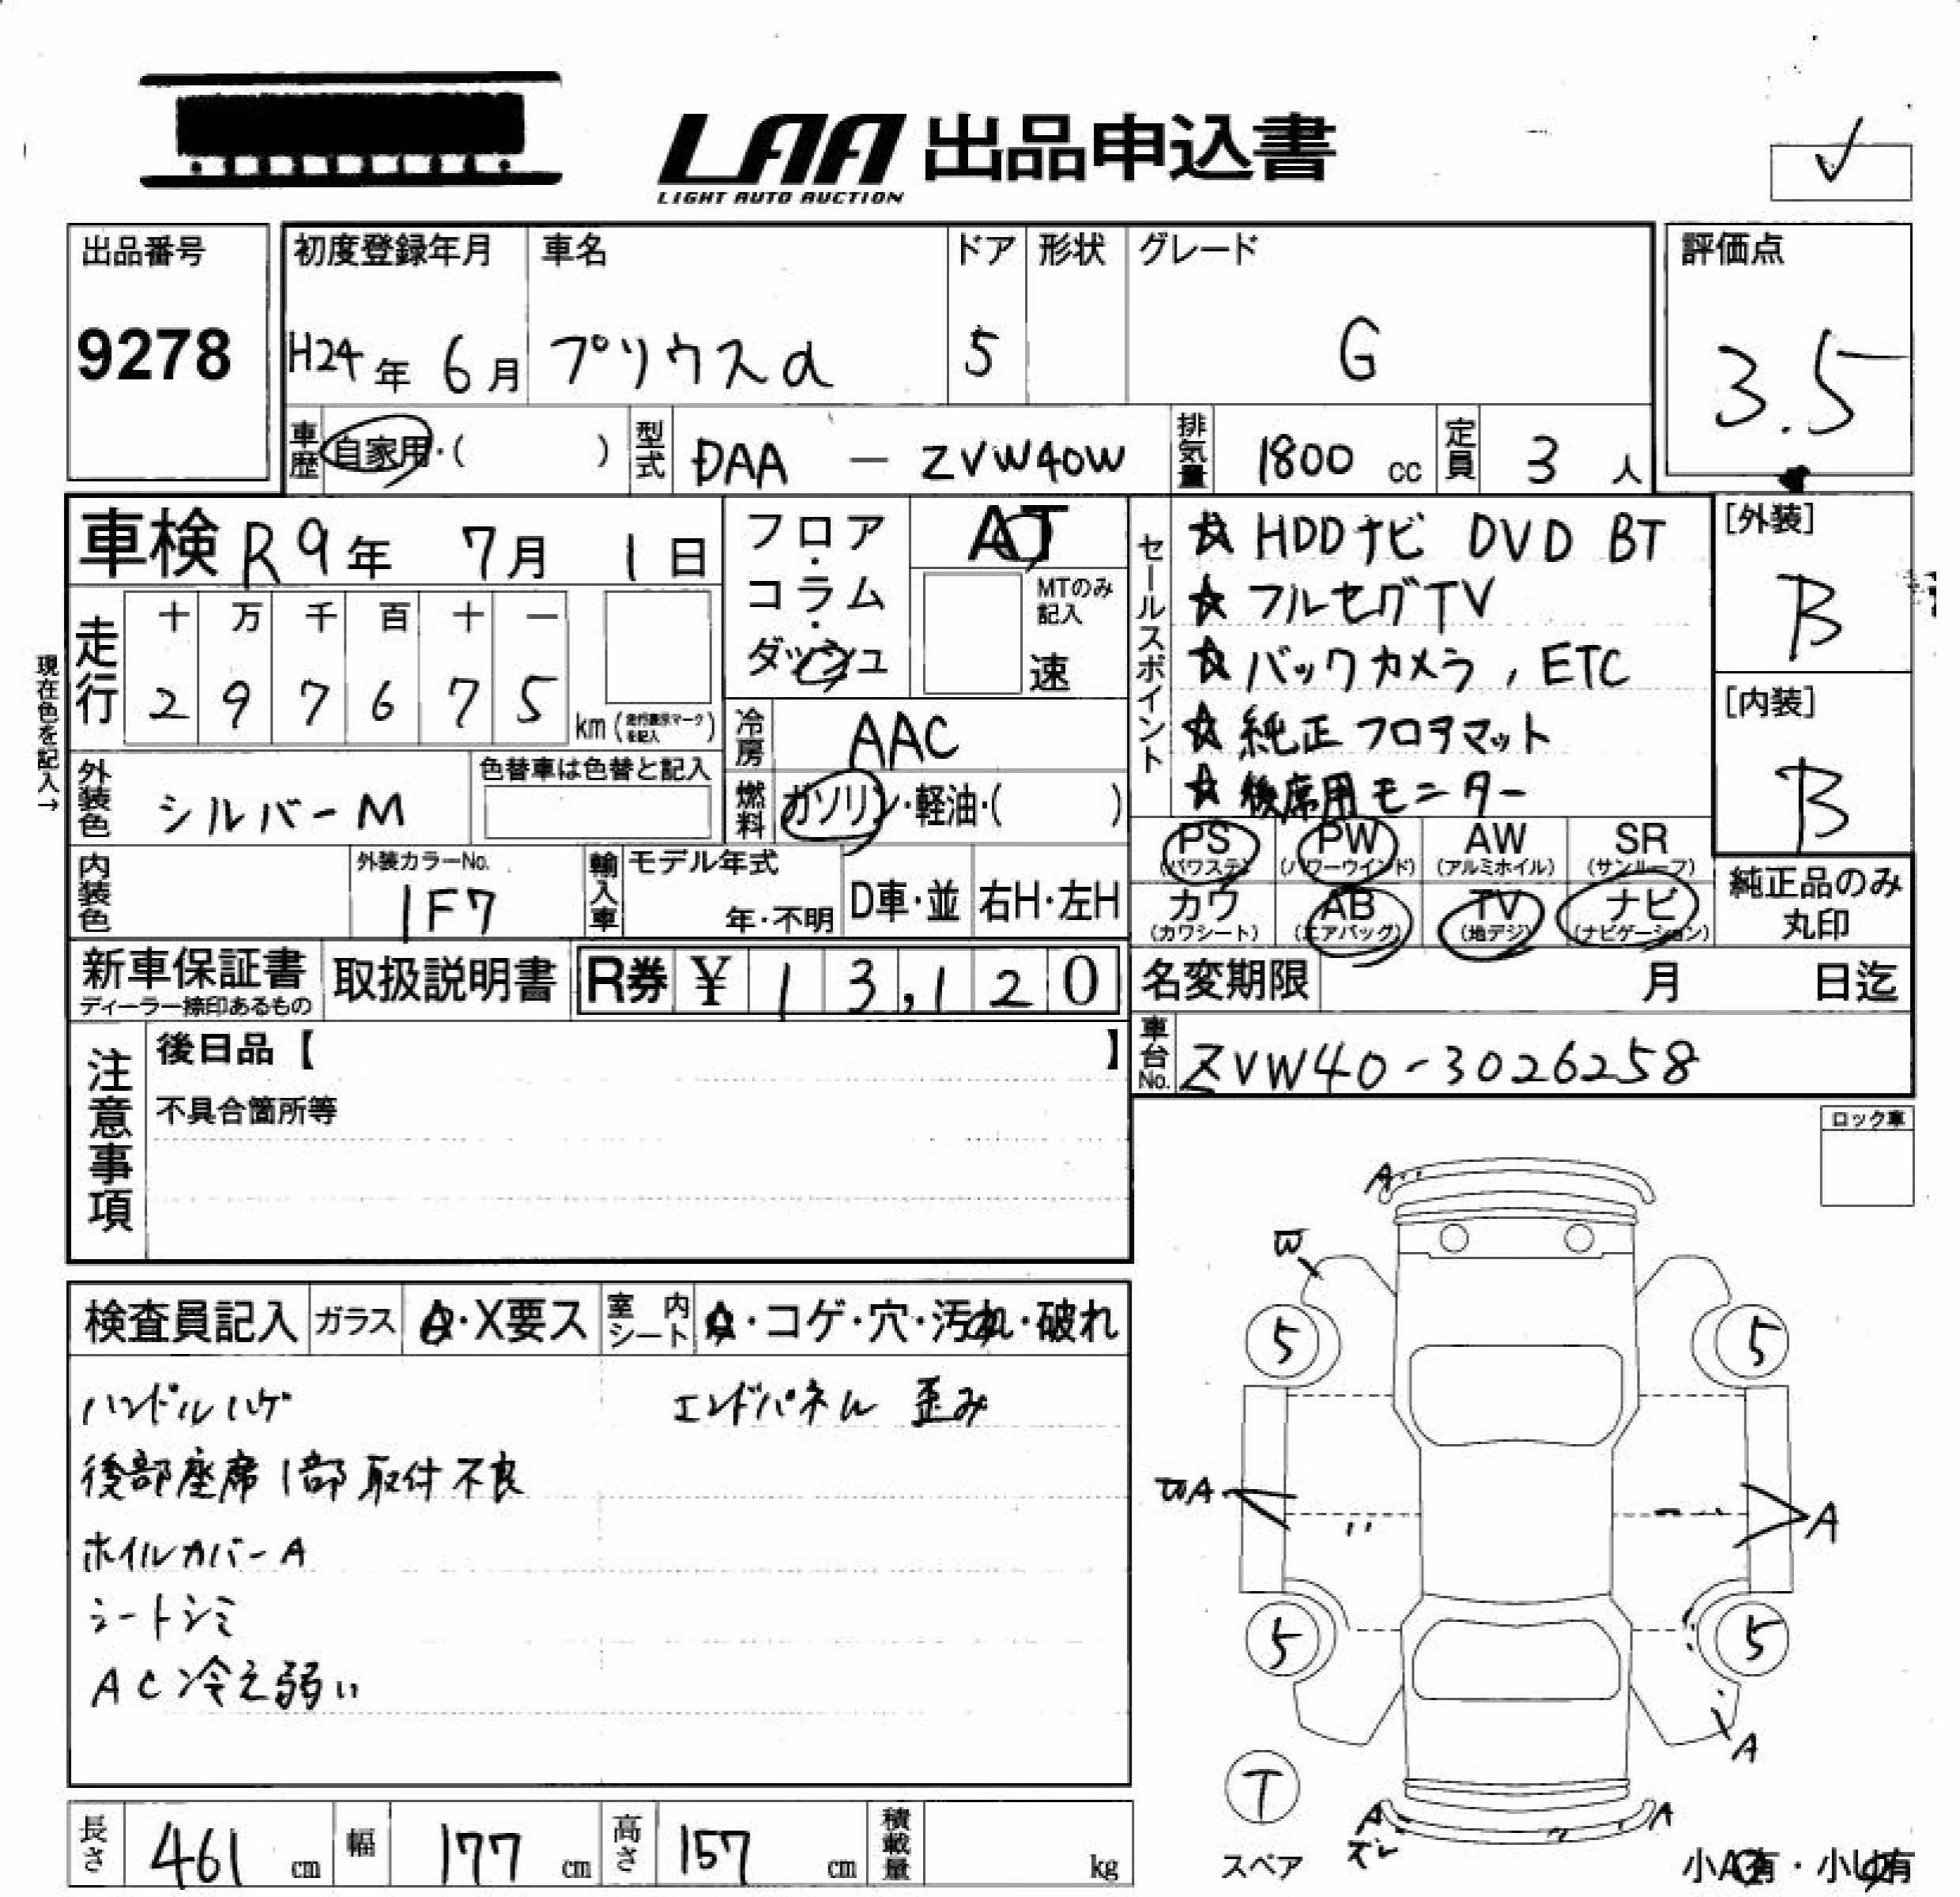 LAA 出品申込書
LIGHT AUTO AUCTION
出品番号
9278
初度登録年月
H24年 6月
車名
プリウスα
ドア
5
形状
グレード
G
評価点
3.5
車歴
自家用・( )
型式
DAA - ZVW40W
排気量
1800 cc
定員
3 人
車検 R9年 7月 1日
走行
十 万 千 百 十 一
2 9 7 6 7 5
km
現在色を記入→
フロア・コラム・ダッシュ
AT
MTのみ記入
速
冷房
AAC
燃料
ガソリン・軽油・( )
外装色
シルバーM
色替車は色替と記入
内装色
外装カラーNo.
1F7
輸入車
モデル年式
年・不明
D車・並
右H・左H
セールスポイント
☆ HDDナビ DVD BT
☆ フルセグTV
☆ バックカメラ, ETC
☆ 純正フロアマット
☆ 後席用モニター
[外装]
B
[内装]
B
PS (パワステ)
PW (パワーウインド)
AW (アルミホイル)
SR (サンルーフ)
カワ (カワシート)
AB (エアバッグ)
TV (地デジ)
ナビ (ナビゲーション)
純正品のみ丸印
新車保証書
ディーラー捺印あるもの
取扱説明書
R券 ¥ 13,120
名変期限 月 日迄
車台No.
ZVW40-3026258
注意事項
後日品【 】
不具合箇所等
ロック車
検査員記入
ガラス
A・X要ス
室内シート
A・コゲ・穴・汚れ・破れ
ハンドルハゲ
エンドパネル 歪み
後部座席1部取付不良
ホイルカバーA
シートシミ
AC冷え弱い
A
5 5
A
5 5
A
T
スペア
A
ズレ
A
小A有・小U有
長さ
461 cm
幅
177 cm
高さ
157 cm
積載量
kg